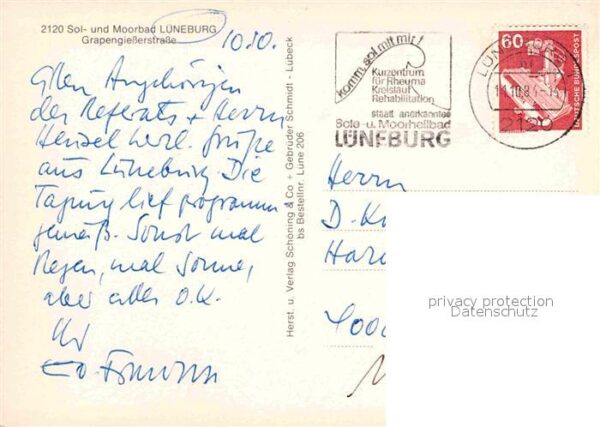 2120 Sol- und Moorbad LÜNEBURG
Grapengießerstraße
10.10.
Allen Angehörigen
des Referats + Herrn
Hensel herzl. Grüße
aus Lüneburg. Die
Tagung lief programm-
gemäß. Sonst mal
Regen, mal Sonne,
aber alles O.K.
Ihr
Herst. u. Verlag Schöning & Co + Gebrüder Schmidt - Lübeck
bs Bestellnr. Lüne 206
komm, sol mit mir!
Kurzentrum
für Rheuma
Kreislauf
Rehabilitation
staatl. anerkanntes
Sole- u. Moorheilbad
LÜNEBURG
60
DEUTSCHE BUNDESPOST
2120
Herrn
D. K
Har
4000
privacy protection
Datenschutz